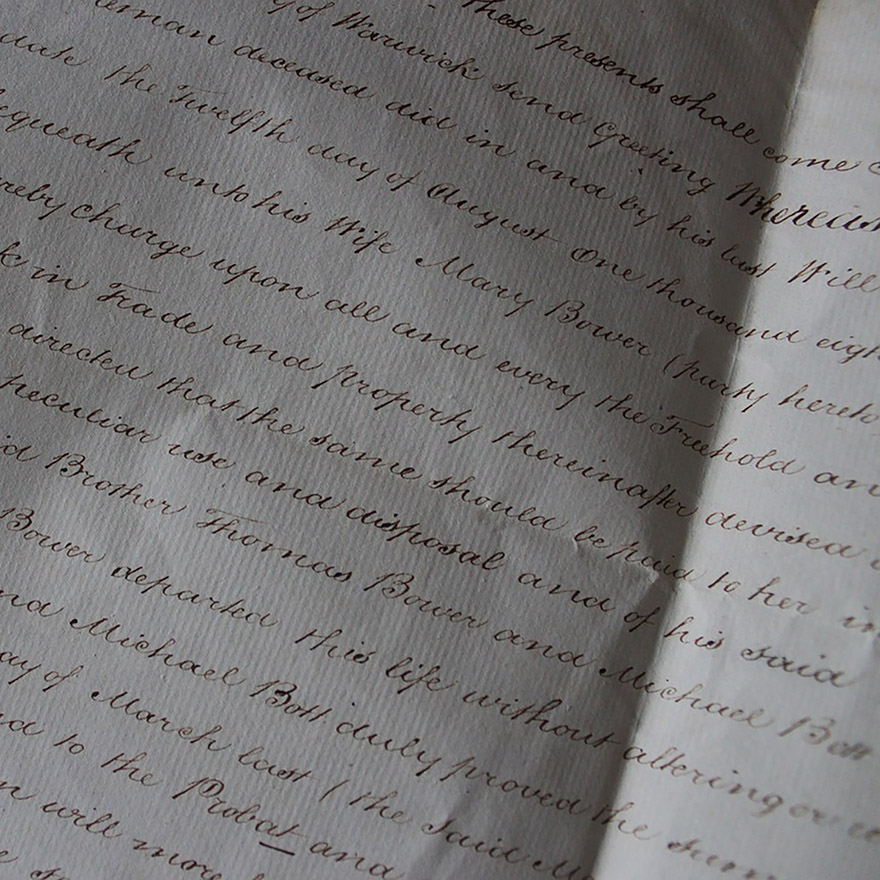 These presents shall come
y of Warwick send Greeting Whereas
eman deceased did in and by his last Will
date the Twelfth day of August One thousand eigh
equeath unto his Wife Mary Bower (party hereto
reby charge upon all and every the Freehold an
k in Trade and property thereinafter devised
directed that the same should be paid to her in
peculiar use and disposal and of his said
id Brother Thomas Bower and Michael Bott
Bower departed this life without altering or re
nd Michael Bott duly proved the sam
ay of March last (the said M
nd to the Probat and
n will more